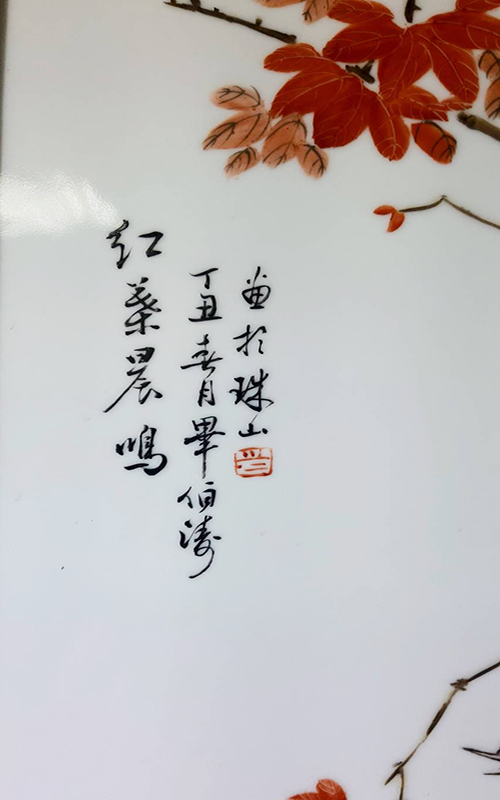 紅葉晨鳴
丁丑春月畢伯濤
畫於珠山